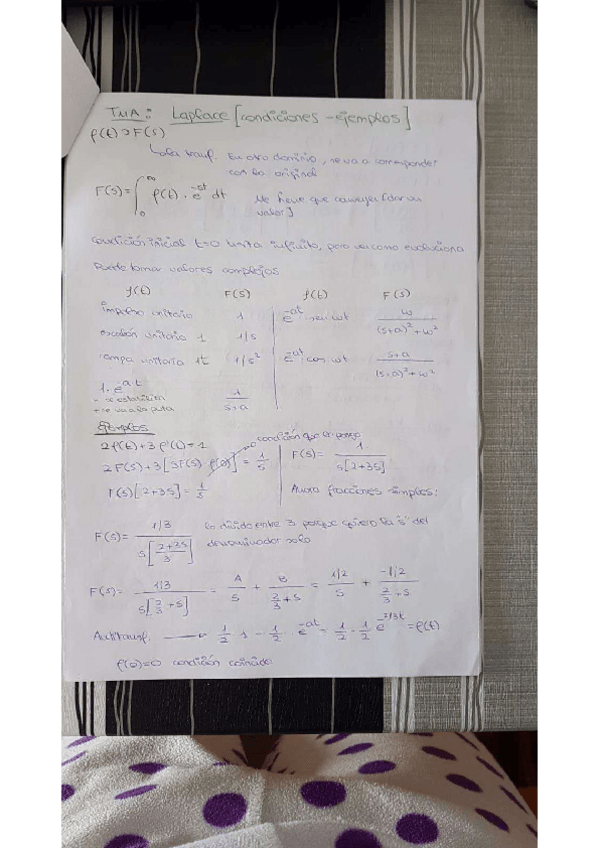 TMA: Laplace [condiciones - ejemplos]
f(t) ⊃ F(s)
En otro dominio, se va a corresponder
con la original
F(s) = ∫₀^∞ f(t) · e^-st dt
Me tiene que converger [dar un
valor]
Condición inicial t=0 hasta infinito, para ver como evoluciona
Puede tomar valores complejos
f(t) F(s) f(t) F(s)
impulso unitario 1 e^-at sen wt w/((s+a)²+w²)
escalón unitario 1 1/s
rampa unitaria 1t 1/s² e^-at cos wt s+a/((s+a)²+w²)
1·e^-a·t 1/(s+a)
- se estabiliza
+ se va a la puta
Ejemplos
condición que te pongo
2f(t)+3f'(t)=1
2F(s)+3[sF(s)-f(0)] = 1/s
F(s)[2+3s] = 1/s
F(s) = 1/(s[2+3s])
Ahora fracciones simples:
F(s) = (1/3)/(s[(2+3s)/3]) Lo divido entre 3 porque quiero la "s" del
denominador sola
F(s) = (1/3)/(s[2/3+s]) = A/s + B/(2/3+s) = (1/2)/s + (-1/2)/(2/3+s)
Antitransf. → 1/2 · 1 - 1/2 · e^-at = 1/2 - 1/2 e^-2/3t = f(t)
f(0)=0 condición coincide